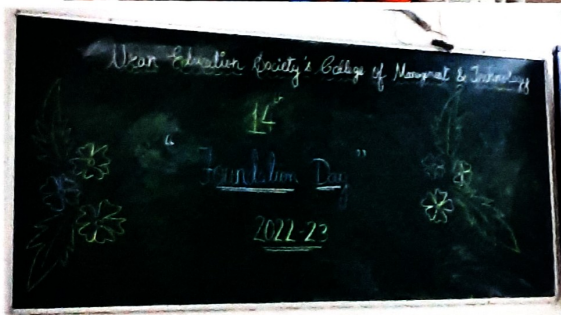 Uran Education Society's College of Management & Technology
14th
"Foundation Day"
2022-23